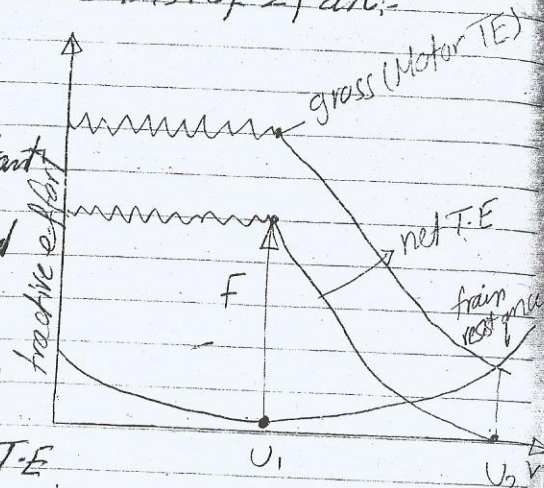 gross (Motor TE)
tant
tractive effort
net T.E
F
train
resistance
T.E
U1
U2 V